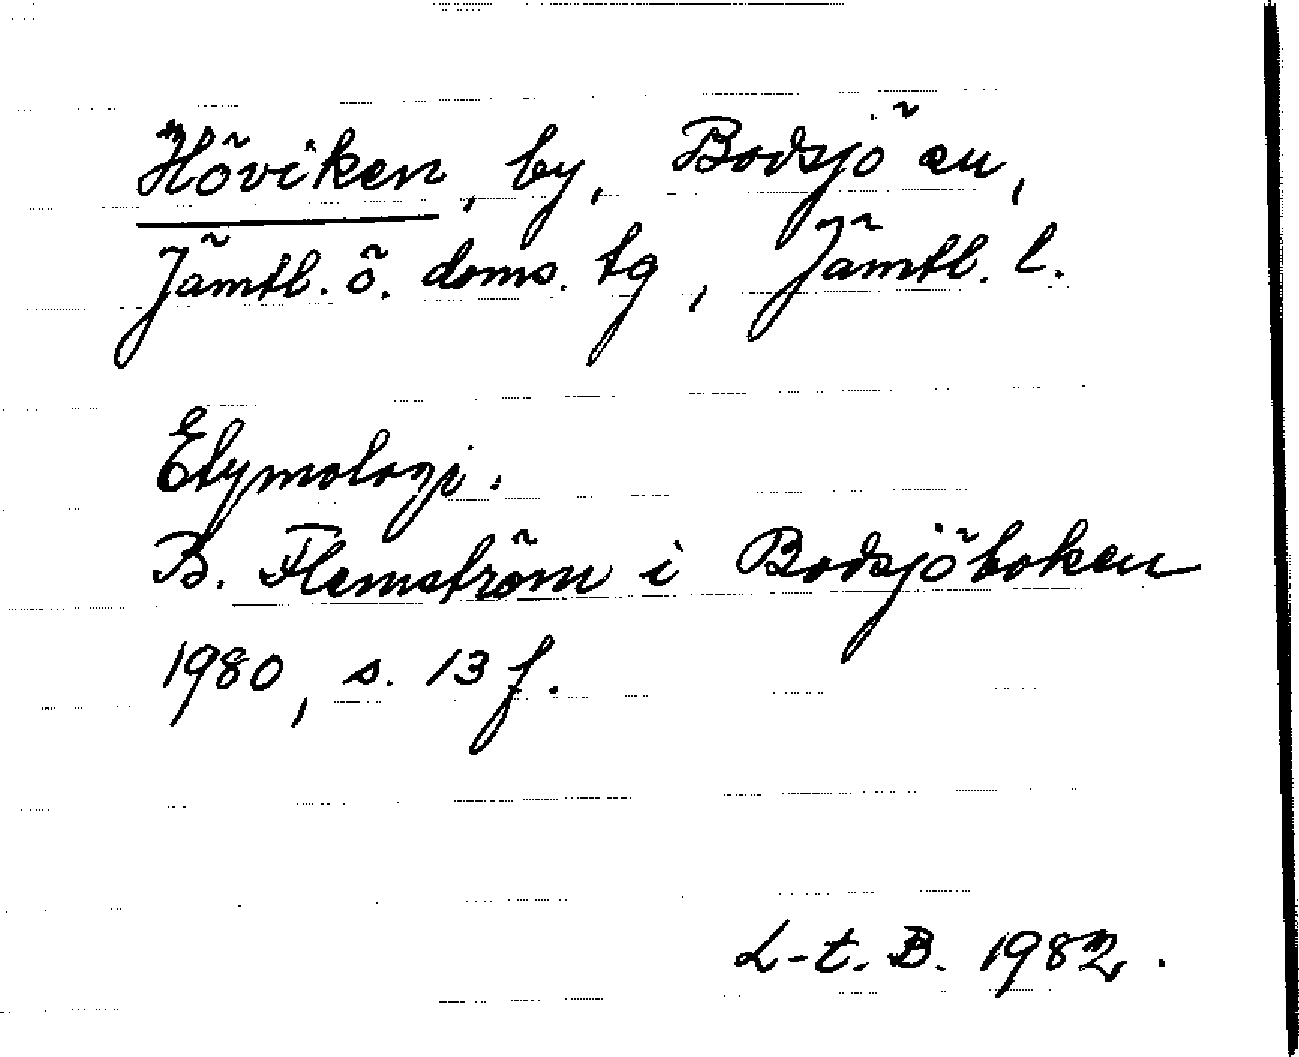 Höviken, by, Bodsjö en,
Jämtl. ö. doms. tg, Jämtl. l.
Etymologi.
B. Flemström i Bodsjöboken
1980, s. 13 f.
L-t. B. 1982.